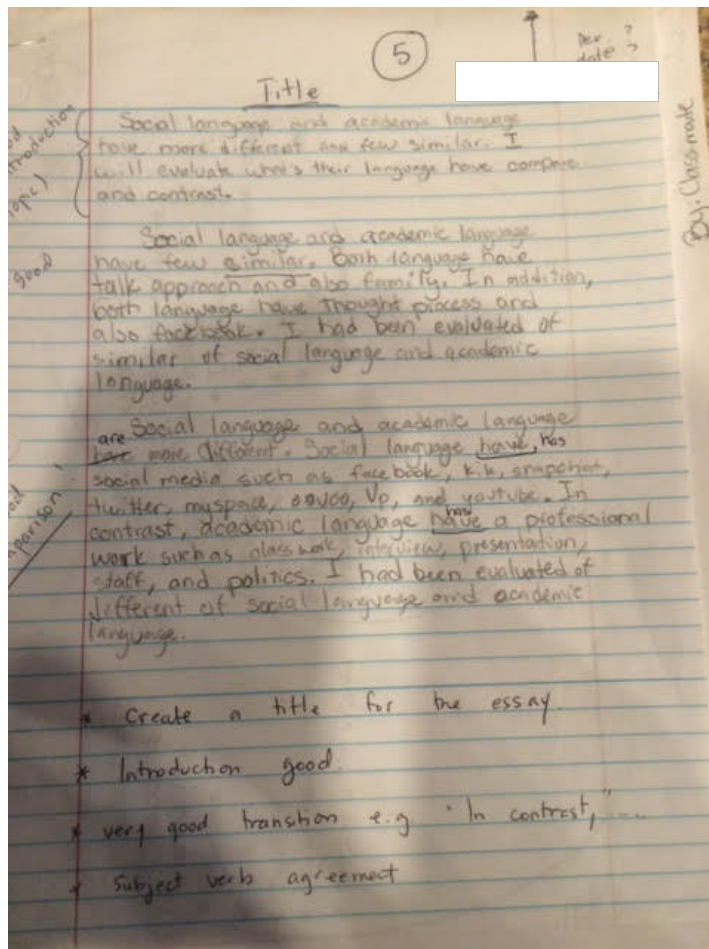 5
Per. ?
date ?
Title
Social language and academic language
have more different and few similar. I
will evaluate what's their language have compare
and contrast.
Social language and academic language
good
have few similar. Both language have
talk approach and also family. In addition,
both language have thought process and
also facebook. I had been evaluated of
similar of social language and academic
language.
Social language and academic language
are
have more different. Social language have, has
social media such as facebook, kik, snapchat,
twitter, myspace, oovoo, Vp, and youtube. In
has
contrast, academic language have a professional
work such as class work, interview, presentation,
staff, and politics. I had been evaluated of
different of social language and academic
language.
* Create a title for the essay.
* Introduction good.
* very good transtion e.g "In contrast,"....
* Subject verb agreemect
By: Classmate